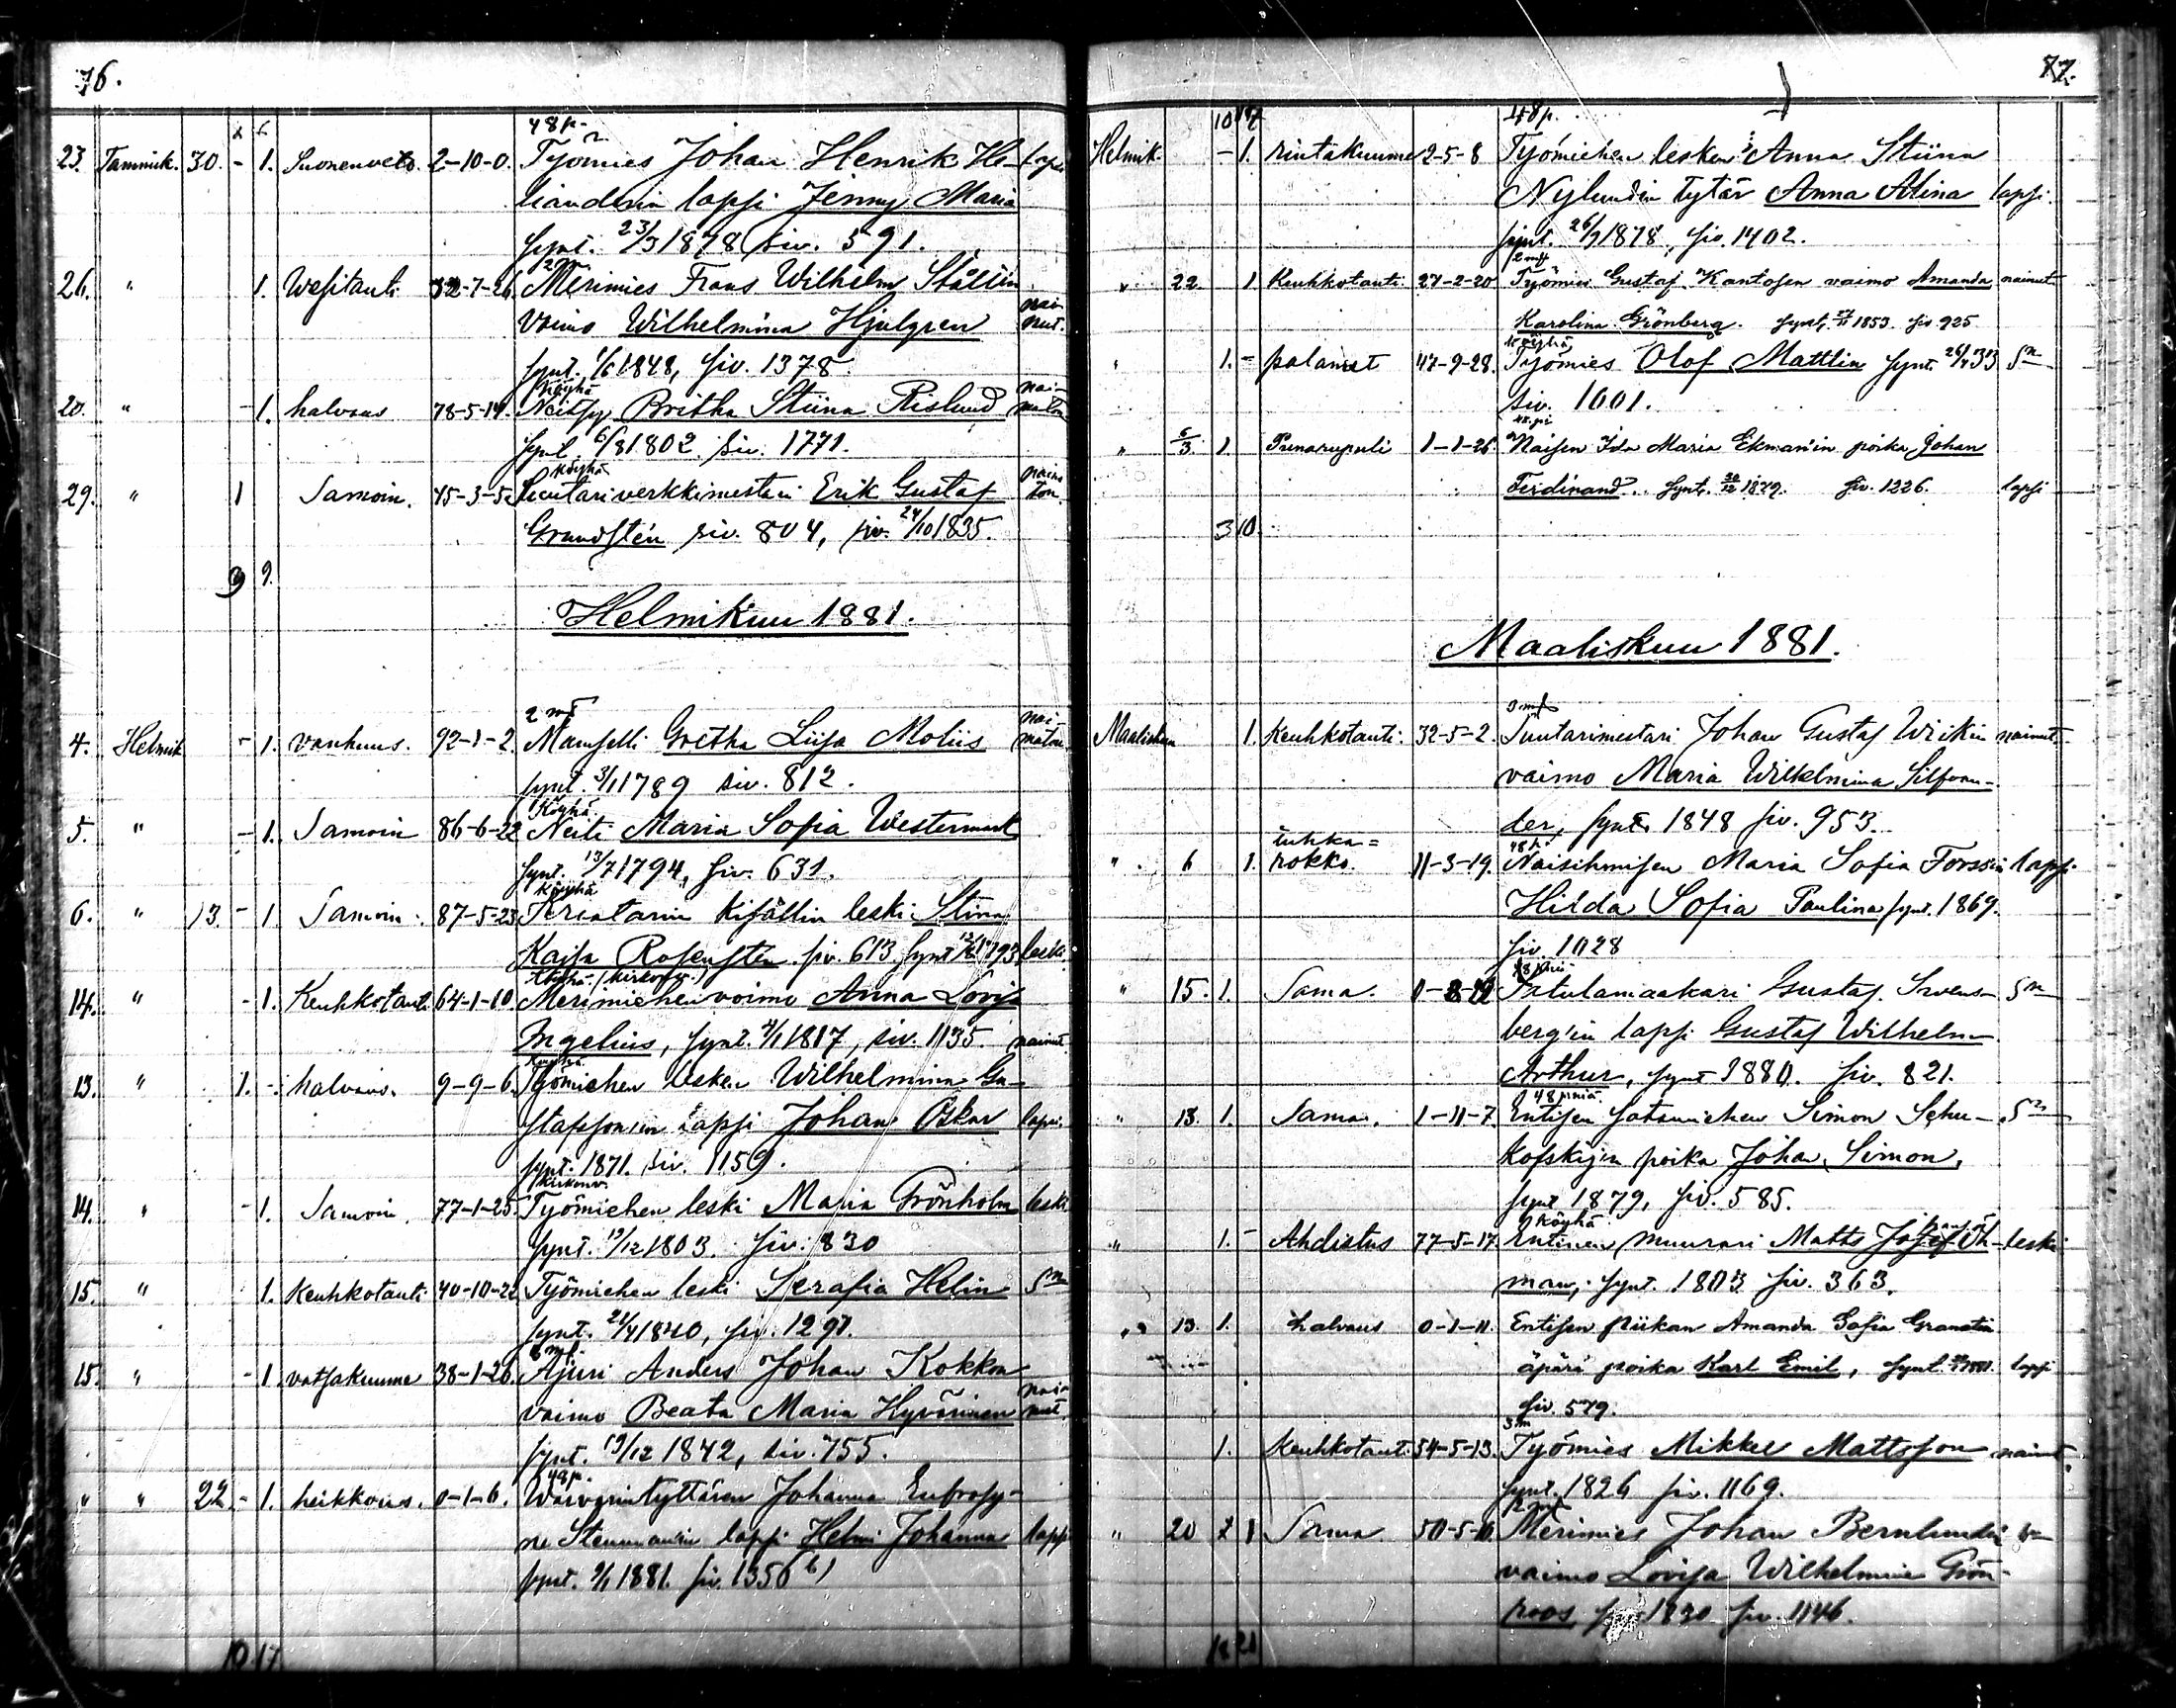 76.
48 p.
23. Tammik. 30. - 1. Suonenveto. 2-10-0. Työmies Johan Henrik He- lapsi
lianderin lapsi Jenny Maria
synt. 23/3 1878 siv. 591.
26. " 1. Vesitauti 32-7-26. Merimies Frans Wilhelm Ståhlin
vaimo Wilhelmina Hjulgren nai-nut.
synt. 1/6 1848, siv. 1378.
Köyhä
20. " - 1. halvaus 78-5-14. Neitsy Britha Stiina Rislund nai-maton
synt. 6/8 1802 siv. 1771.
Köyhä
29. " 1 Samoin. 45-3-5. Suutariverkkimestari Erik Gustaf naima-ton.
Grundstén siv. 804, siv. 24/10 1835.
9 9.
Helmikuu 1881.
4. Helmik - 1. vanhuus. 92-1-2. Mamselli Gretha Liisa Moliis nai-maton
synt. 3/1 1789 siv. 812.
Köyhä
5. " - 1. Samoin 86-6-22 Neiti Maria Sofia Westermark
synt. 13/7 1794, siv. 631.
Köyhä
6. " 13. - 1. Samoin. 87-5-23 leski Stina
Kajsa Rosenstén siv. 613 synt 1793 leski
Köyhä (kirkonv.)
14. " - 1. Keuhkotauti 64-1-10. Merimiehen vaimo Anna Lovisa
Ingelius, synt. 4/1 1817, siv. 1135. nainut.
Köyhä
13. " 1. - halvaus. 9-9-6. Työmiehen lesken Wilhelmina Gu-
stafssonin lapsi Johan Oskar lapsi.
synt. 1871. siv. 1159.
Kirkonv.
14. " - 1. Samoin. 77-1-25. Työmiehen leski Maria Grönholm leski
synt. 19/12 1803. siv. 830
15. " 1. Keuhkotauti 40-10-22 Työmiehen leski Serafia Helin Sn
synt. 21/4 1840, siv. 1297.
15. " - 1. vatsakuume 38-1-26. Ajuri Anders Johan Kokkon
vaimo Beata Maria Hyvärinen nai-nut.
synt. 19/12 1842, siv. 755.
48 p.
" " 22 - 1. heikkous. 0-1-6. Johanna Eufrosy-
ne Stenmanin lapsi Helmi Johanna lapsi
synt. 9/1 1881. siv. 1356
10 17
77.
10 17
48 p.
Helmik. - 1. rintakuume 2-5-8 Työmiehen lesken Anna Stiina
Nylundin tytär Anna Alina lapsi.
synt. 26/9 1878, siv. 1402.
" 22 1 Keuhkotauti. 27-2-20 Työmies Gustaf Kantosen vaimo Amanda nainut
Karolina Grönberg. synt. 1853. siv. 925
köyhä
" 1. - palanut 47-9-28. Työmies Olof Mattlin synt. 26/4 33 Sn
siv. 1001.
" 6/3. 1. Punarupuli 1-1-26 Naisen Ida Maria Ekman'in poika Johan
Ferdinand. synt. 1879. siv. 1226. lapsi
3 10.
Maaliskuu 1881.
3 mk
Maaliskuu 1. Keuhkotauti. 32-5-2. Suutarimestari Johan Gustaf Wiikin nainut.
vaimo Maria Wilhelmina Silfvan-
der, synt. 1848 siv. 953.
" 6 1. tuhka=
rokko. 11-3-19. Naisihmisen Maria Sofia Forssin lapsi
Hilda Sofia Paulina synt. 1869.
siv. 1028
" 15. 1. Sama. Satulamaakari Gustaf Svens- Sn
berg'in lapsi Gustaf Wilhelm
Arthur, synt 1880. siv. 821.
48 p:niä
" 13. 1. Sama. 1-11-7. Entisen sotamiehen Simon Schu- Sn
kofskijn poika Johan Simon,
synt 1879, siv. 585.
köyhä
" 1. - Ahdistus 77-5-17 Entinen muurari Matts Josef Öh- leski
man, synt. 1803 siv. 363.
" 13. 1. halvaus 0-1-11. Entisen piikan Amanda Sofia Granatin
äpärä poika Karl Emil, synt. 1881. lapsi
siv. 579.
1. Keuhkotauti. 54-5-13. Työmies Mikkel Mattsson nainut.
synt. 1826 siv. 1169.
" 20 1 Sama Merimies Johan Bernlundin Sn
vaimo Lovisa Wilhelmina Grön-
roos 1830 siv. 1146.